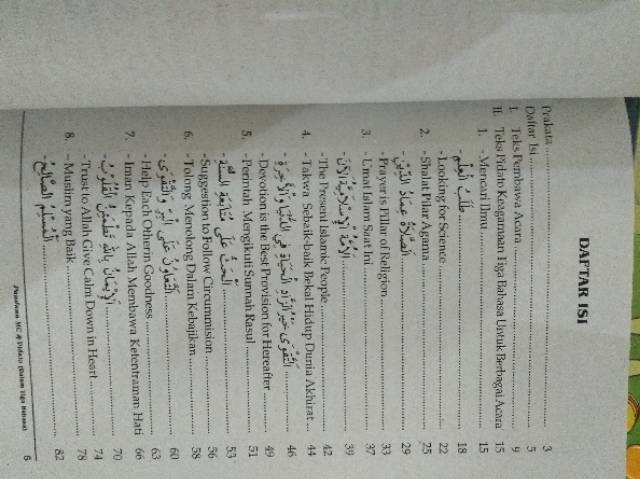 DAFTAR ISI
Prakata ........ 3
Daftar Isi ........ 5
I. Teks Pembawa Acara ........ 9
II. Teks Pidato Keagamaan Tiga Bahasa Untuk Berbagai Acara 15
1. - Mencari Ilmu ........ 15
- طَلَبُ الْعِلْمِ ........ 18
- Looking for Science ........ 22
2. - Shalat Pilar Agama ........ 25
- الصَّلَاةُ عِمَادُ الدِّيْنِ ........ 29
- Prayer is Pillar of Religion ........ 33
3. - Umat Islam Saat Ini ........ 37
- الْأُمَّةُ الْإِسْلَامِيَّةُ الْآنَ ........ 39
- The Present Islamic People ........ 42
4. - Takwa Sebaik-baik Bekal Hidup Dunia Akhirat ... 44
- التَّقْوَى خَيْرُ الزَّادِ لِلْحَيَاةِ فِي الدُّنْيَا وَالْآخِرَةِ ........ 46
- Devotion is the Best Provision for Hereafter ........ 49
5. - Perintah Mengikuti Sunnah Rasul ........ 51
- الْحَثُّ عَلَى مُتَابَعَةِ السُّنَّةِ ........ 53
- Suggestion to Follow Circumsision ........ 56
6. - Tolong Menolong Dalam Kebajikan ........ 58
- التَّعَاوُنُ عَلَى الْبِرِّ وَالتَّقْوَى ........ 60
- Help Each Other in Goodness ........ 63
7. - Iman Kepada Allah Membawa Ketentraman Hati 66
- الْإِيْمَانُ بِاللهِ تَطْمَئِنُّ الْقُلُوْبُ ........ 70
- Trust to Allah Give Calm Down in Heart ........ 74
8. - Muslim yang Baik ........ 78
- الْمُسْلِمُ الصَّالِحُ ........ 82
Panduan MC & Pidato (Dalam Tiga Bahasa) 5